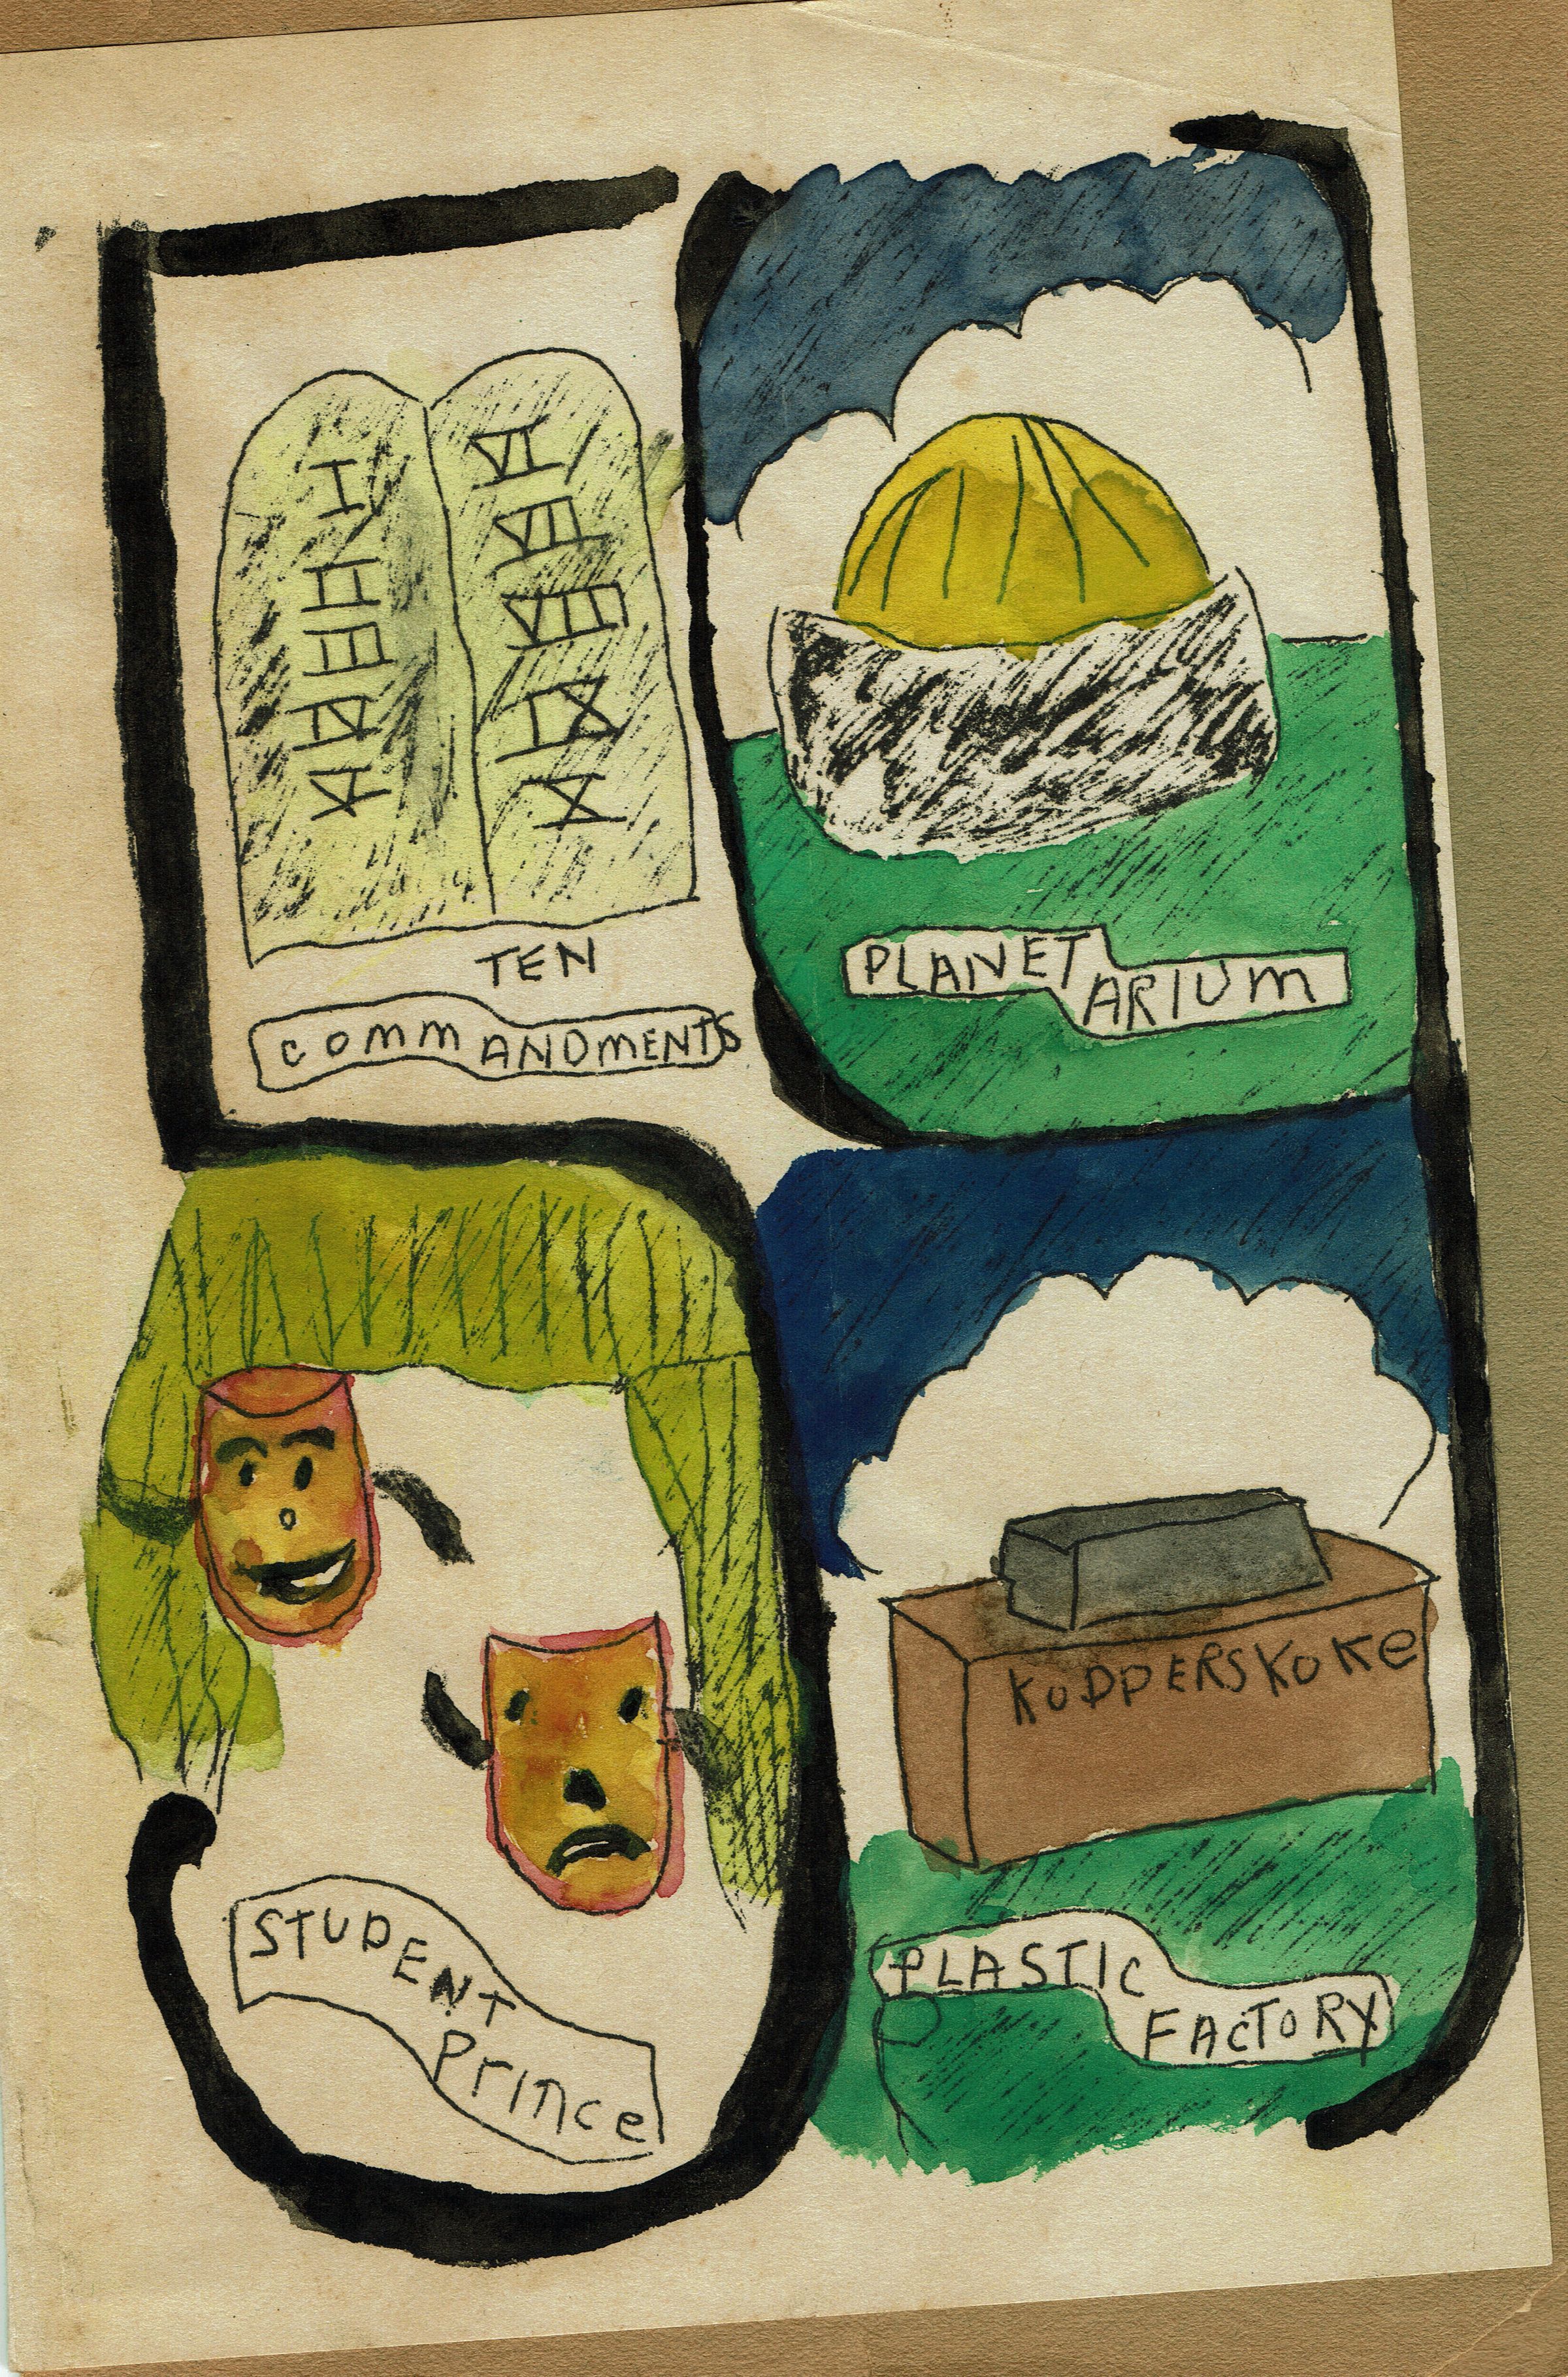 I
II
III
IV
V
VI
VII
VIII
IX
X
TEN
COMMANDMENTS
PLANET
ARIUM
STUDENT
Prince
KOPPERSKOKe
PLASTIC
FACTORY